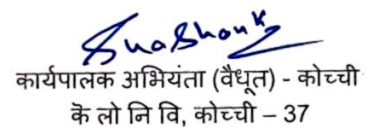 Shashank
कार्यपालक अभियंता (वैधूत) - कोच्ची
कॆ लो नि वि, कोच्ची – 37